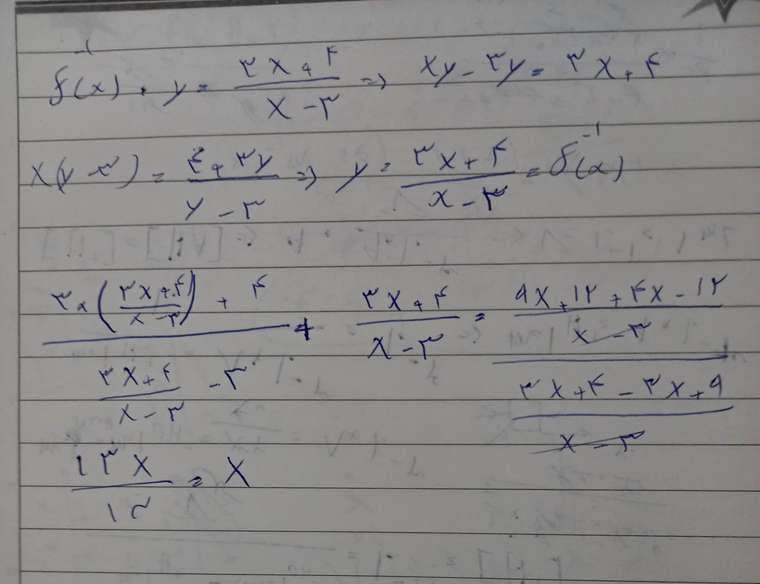 f⁻¹(x) , y = (۳x + ۴)/(x - ۳) ⇒ xy - ۳y = ۳x + ۴
x(y - ۳) = (۴ + ۳y)/(y - ۳) ⇒ y = (۳x + ۴)/(x - ۳) = f⁻¹(x)
(۳ × ((۳x + ۴)/(x - ۳)) + ۴)/((۳x + ۴)/(x - ۳) - ۳) + (۳x + ۴)/(x - ۳) = ((۹x + ۱۲ + ۴x - ۱۲)/(x - ۳))/((۳x + ۴ - ۳x + ۹)/(x - ۳))
۱۳x/۱۳ = x